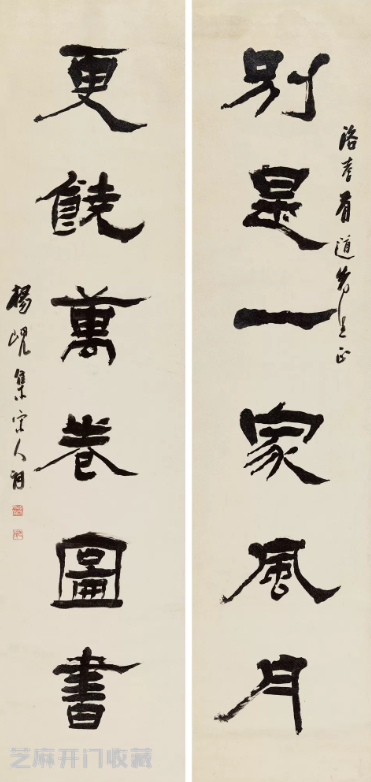 別是一家風月
洛有道先生正
更饒萬卷圖書
楊峴集宋人詞
芝麻开门收藏